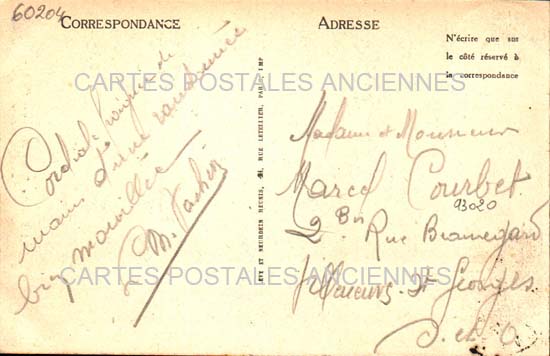 60204
CORRESPONDANCE
ADRESSE
N'écrire que sur
le côté réservé à
la correspondance
CARTES POSTALES ANCIENNES
Cordiale poignée de
main d'une randonnée
bien mouillée
LEVY ET NEURDEIN REUNIS, 44, RUE LETELLIER, PARIS. IMP
Madame et Monsieur
Marcel Courbet
93020
2 Bis Rue Beauregard
Villeneuve-St Georges
S. et O.
CARTES POSTALES ANCIENNES